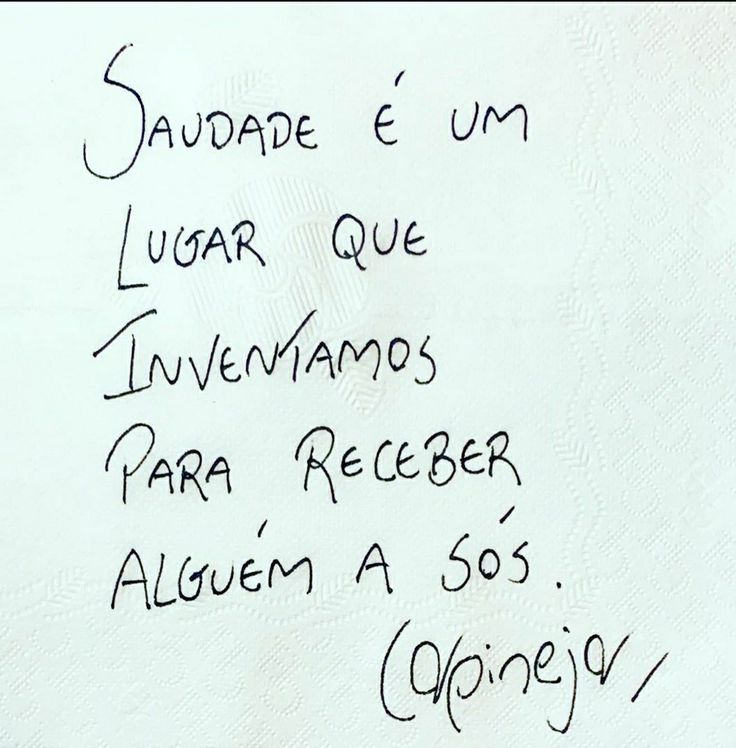 SAUDADE É UM
LUGAR QUE
INVENTAMOS
PARA RECEBER
ALGUÉM A SÓS.
Carpinejar